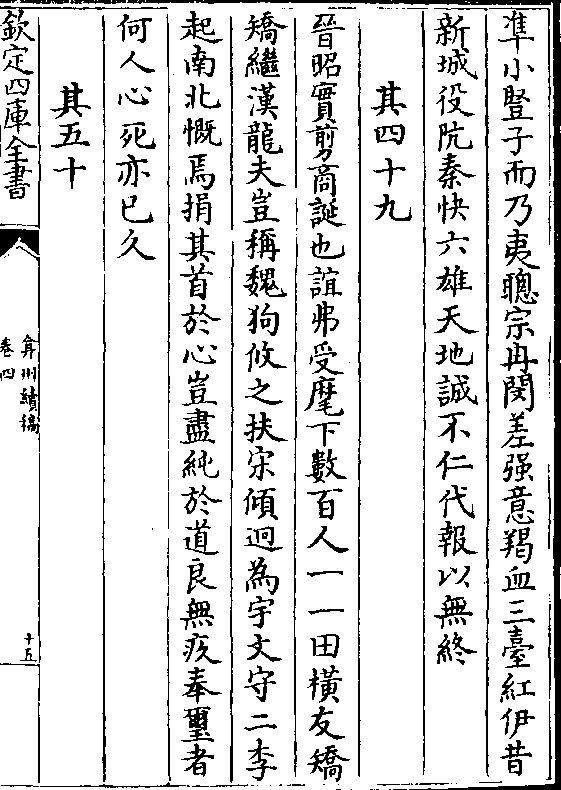 凖小豎子而乃夷聰宗冉閔差强意羯血三臺紅伊昔
新城役阬秦快六雄天地誠不仁代報以無終
其四十九
晉昭實剪商誕也誼弗受麾下數百人一一田橫友矯
矯繼漢龍夫豈稱魏狗攸之扶宋傾迥為宇文守二李
起南北慨焉捐其首於心豈盡純於道良無疚奉璽者
何人心死亦已久
其五十
欽定四庫全書
弇州續稿
卷四
十五